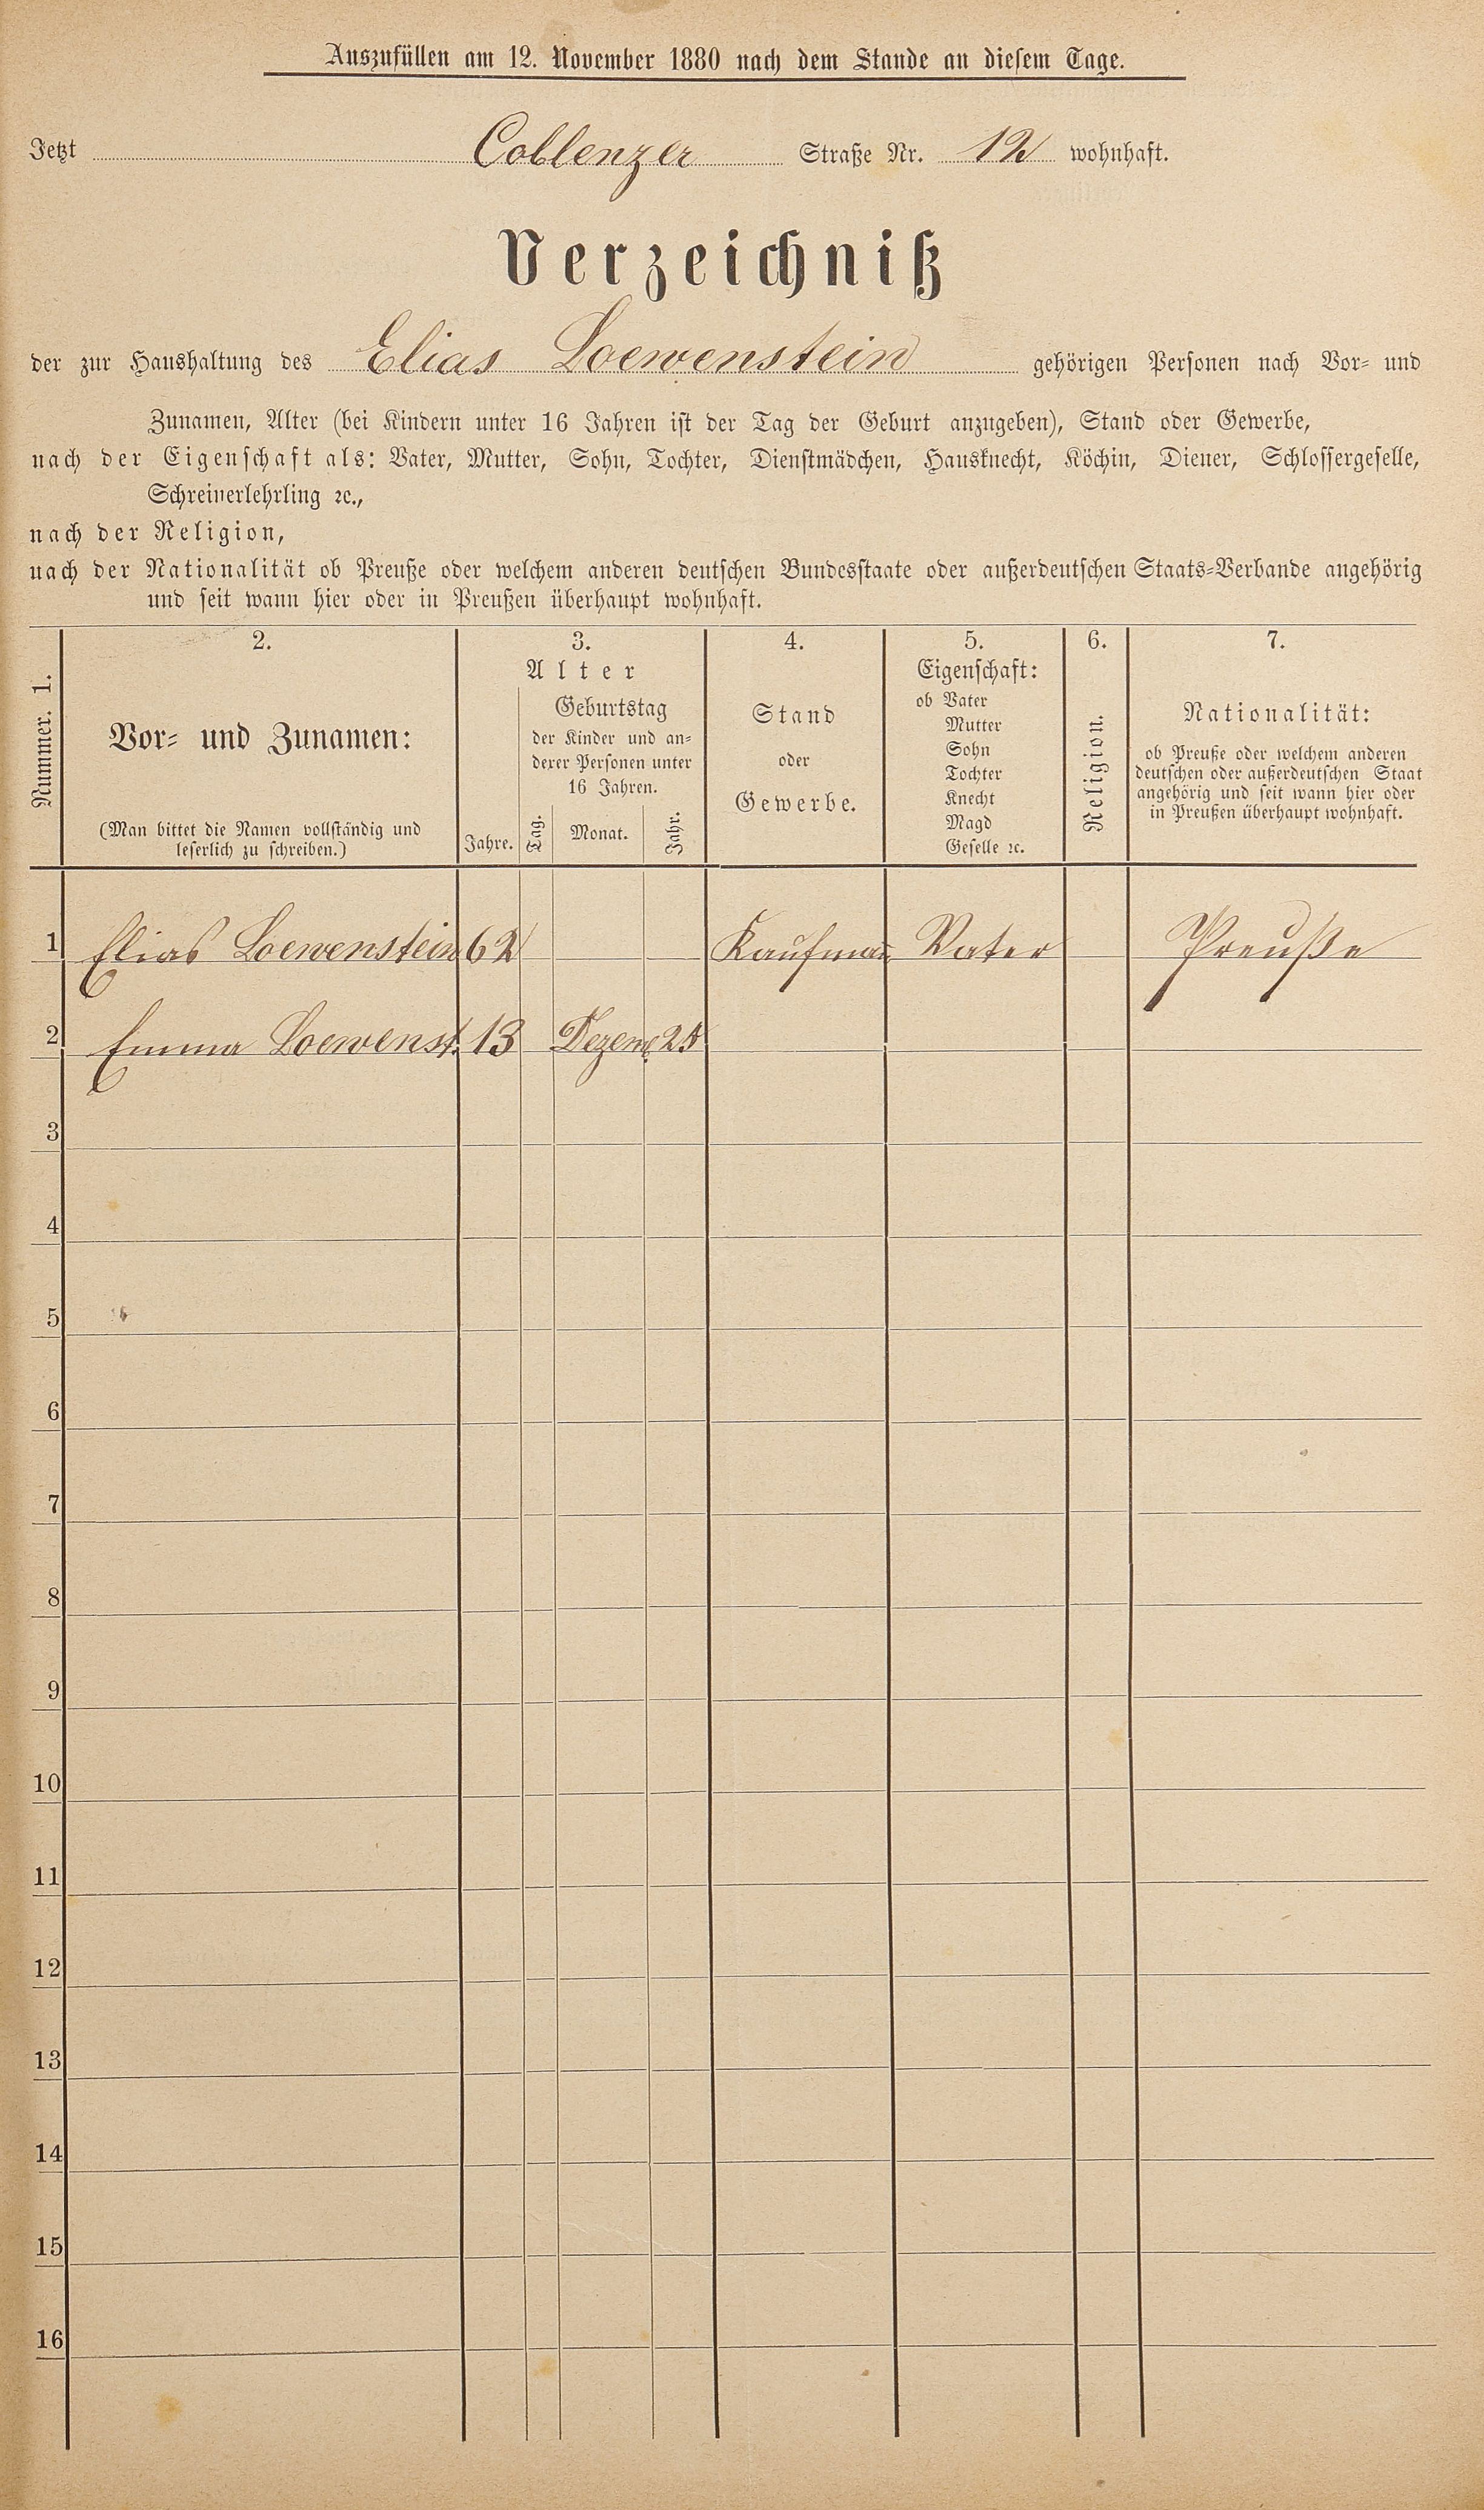 Auszufüllen am 12. November 1880 nach dem Stande an diesem Tage.
Jetzt Coblenzer Straße Nr. 12 wohnhaft.
Verzeichniß
der zur Haushaltung des Elias Loewenstein gehörigen Personen nach Vor- und
Zunamen, Alter (bei Kindern unter 16 Jahren ist der Tag der Geburt anzugeben), Stand oder Gewerbe,
nach der Eigenschaft als: Vater, Mutter, Sohn, Tochter, Dienstmädchen, Hausknecht, Köchin, Diener, Schlossergeselle,
Schreinerlehrling ꝛc.,
nach der Religion,
nach der Nationalität ob Preuße oder welchem anderen deutschen Bundesstaate oder außerdeutschen Staats-Verbande angehörig
und seit wann hier oder in Preußen überhaupt wohnhaft.
Nummer. 1.
2.
Vor- und Zunamen:
(Man bittet die Namen vollständig und
leserlich zu schreiben.)
3.
Alter
Jahre.
Geburtstag
der Kinder und an-
derer Personen unter
16 Jahren.
Tag. Monat. Jahr.
4.
Stand
oder
Gewerbe.
5.
Eigenschaft:
ob Vater
Mutter
Sohn
Tochter
Knecht
Magd
Geselle ꝛc.
6.
Religion.
7.
Nationalität:
ob Preuße oder welchem anderen
deutschen oder außerdeutschen Staat
angehörig und seit wann hier oder
in Preußen überhaupt wohnhaft.
1 Elias Loewenstein 62 Kaufmann Vater Preuße
2 Emma Loewenst. 13 Dezem. 25
3
4
5
6
7
8
9
10
11
12
13
14
15
16